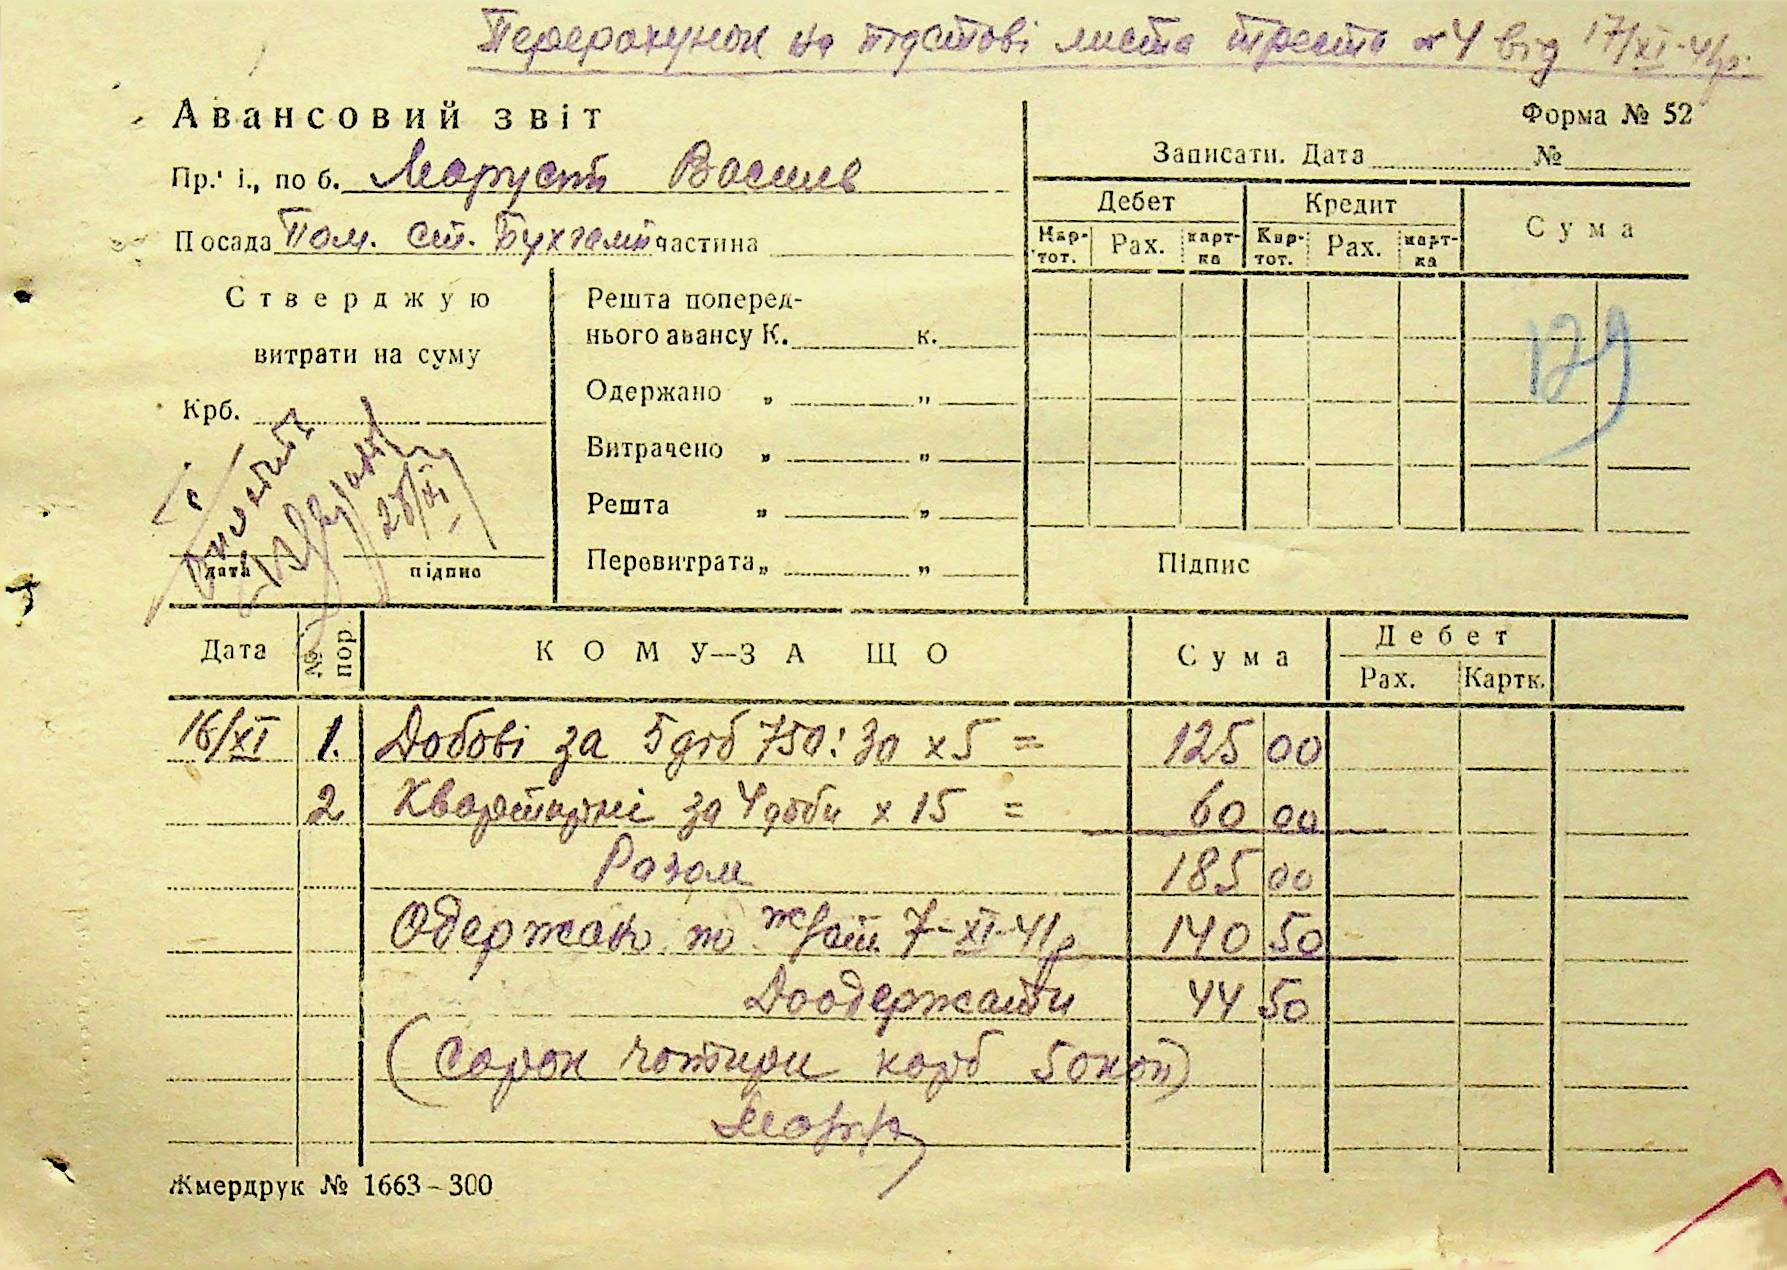 Перерахунок на підставі листа треста № 4 від 17/XI-41р.
Авансовий звіт
Форма № 52
Пр.' і., по б. Марусяк Василь
Записати. Дата №
Посада Пом. ст. Бухгалт частина
Дебет Кредит Сума
Кар-тот. Рах. карт-ка Кар-тот. Рах. карт-ка
Стверджую
витрати на суму
Крб.
Виплатить
28/XI
дата підпис
Решта поперед-
нього авансу К. к.
Одержано „ „
Витрачено „ „
Решта „ „
Перевитрата „ „
129
Підпис
Дата № пор КОМУ—ЗА ЩО Сума Дебет
Рах. Картк.
16/XI 1. Добові за 5 діб 750:30 x 5 = 125 00
2 Квартирні за 4 доби x 15 = 60 00
Разом 185 00
Одержано по 7-XI-41р 140 50
Доодержати 44 50
(Сорок чотири карб 50 коп)
Жмердрук № 1663-300